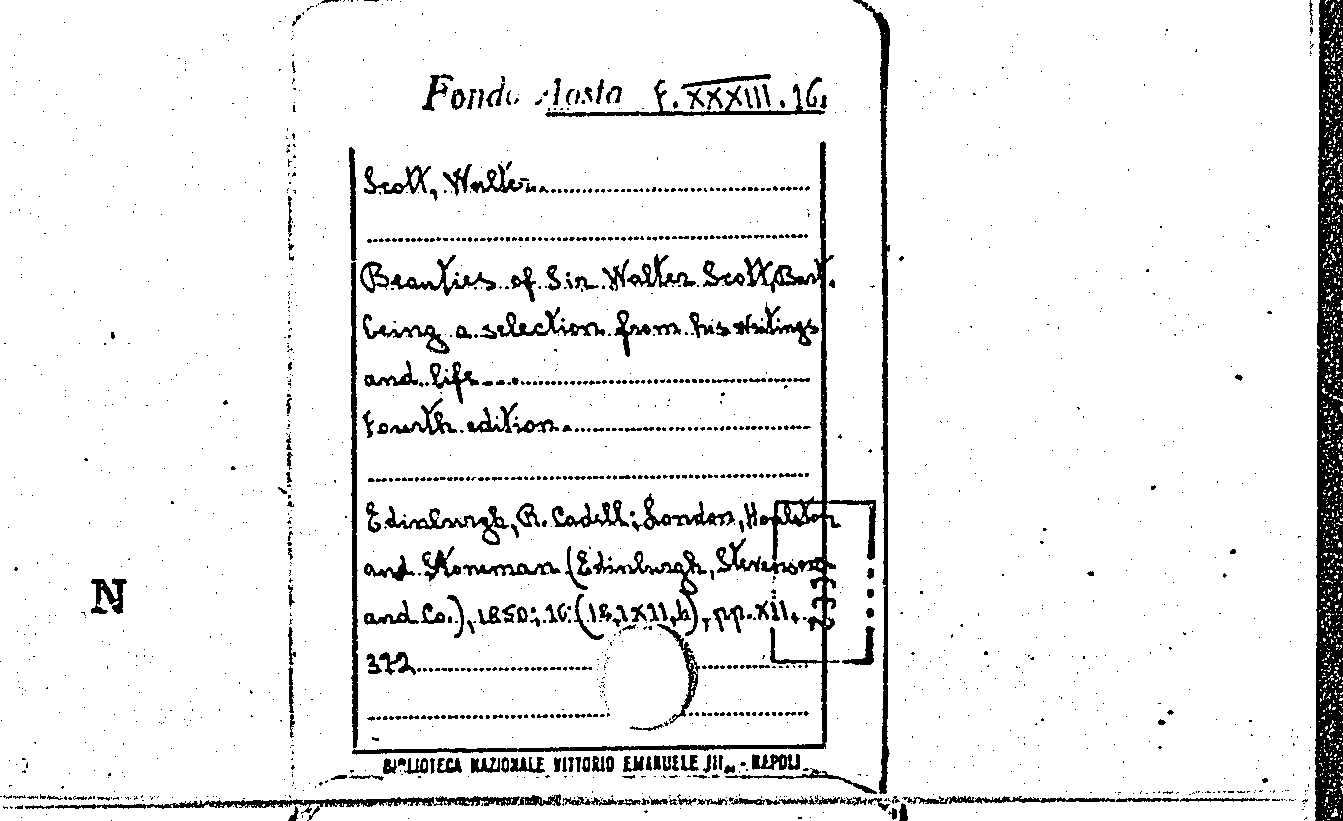 Fondo Aosta F. XXXIII. 16.
Scott, Walter
Beauties of Sir Walter Scott, Bart.
being a selection from his writings
and life
Fourth edition.
Edinburgh, R. Cadell; London, Houlston
and Stoneman (Edinburgh, Stevenson
and Co.), 1850; 16° pp. XII,
372
N
BIBLIOTECA NAZIONALE VITTORIO EMANUELE III - NAPOLI